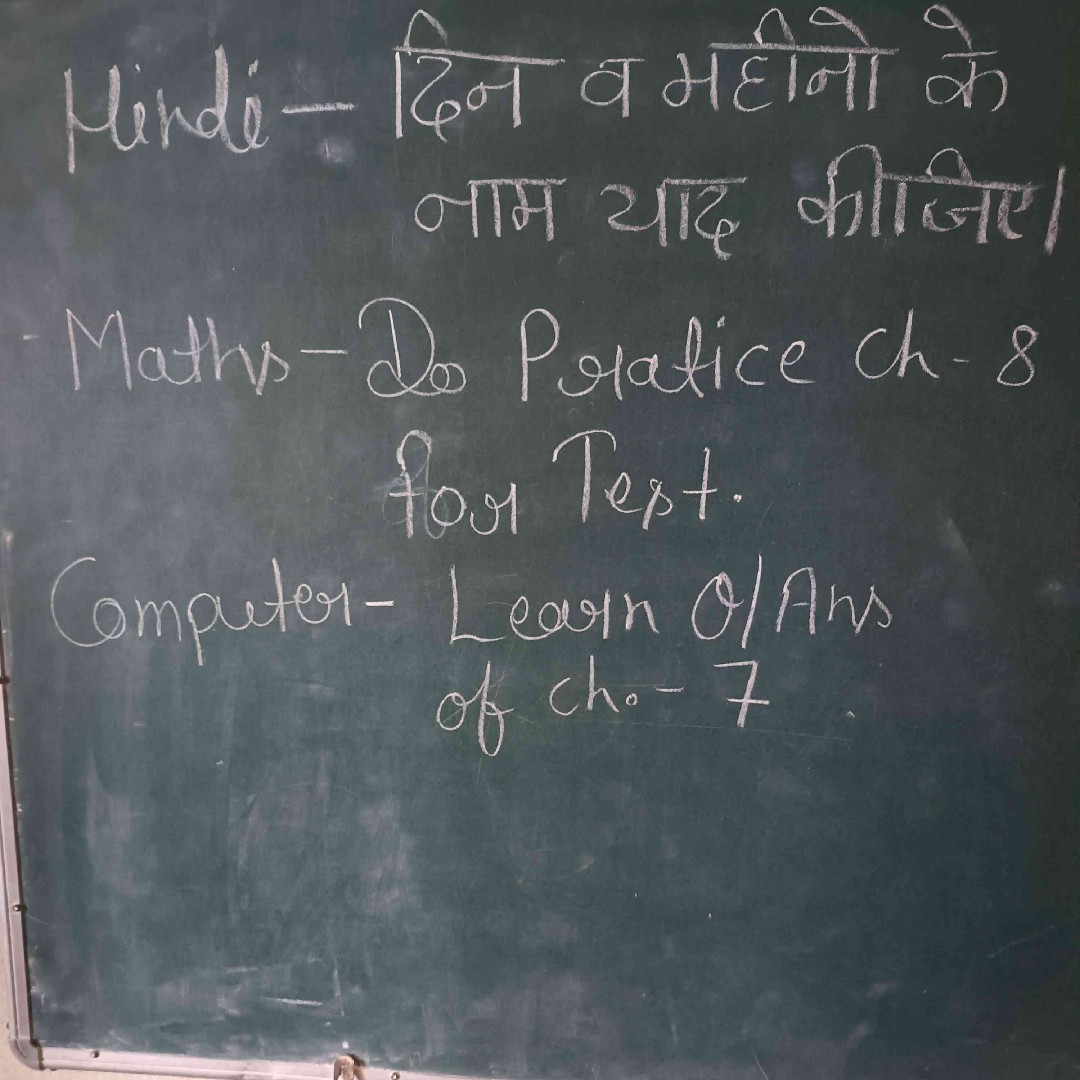 Hindi - दिन व महीनो के
नाम याद कीजिए।
Maths - Do Pratice Ch - 8
for Test.
Computer - Learn Q/Ans
of ch. - 7